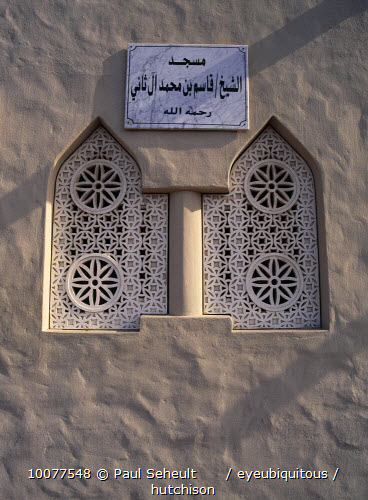 مسجد
الشيخ/قاسم بن محمد آل ثاني
رحمه الله
10077548 © Paul Seheult / eyeubiquitous /
hutchison